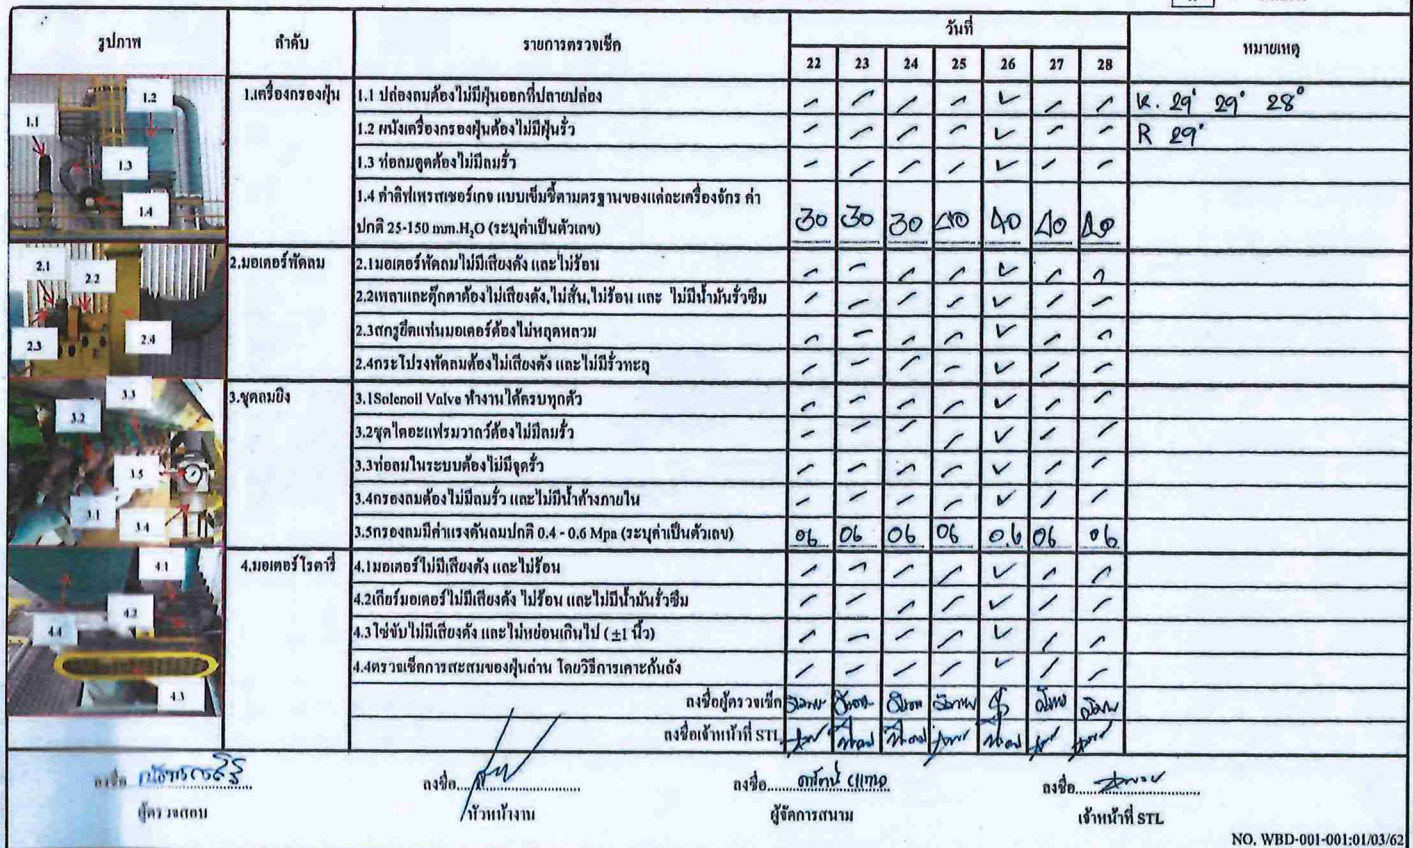 วันที่
รูปภาพ ลำดับ รายการตรวจเช็ค หมายเหตุ
22 23 24 25 26 27 28
1.1 1.2 1.3 1.4
1.เครื่องกรองฝุ่น 1.1 ปล่องลมต้องไม่มีฝุ่นออกที่ปลายปล่อง K. 29° 29° 28°
1.2 ผนังเครื่องกรองฝุ่นต้องไม่มีฝุ่นรั่ว R 29°
1.3 ท่อลมดูดต้องไม่มีลมรั่ว
1.4 ค่าดิฟเพรสเชอร์เกจ แบบเข็มชี้ตามตรฐานของแต่ละเครื่องจักร ค่า
ปกติ 25-150 mm.H₂O (ระบุค่าเป็นตัวเลข) 30 30 30 40 40 40 40
2.1 2.2 2.3 2.4
2.มอเตอร์พัดลม 2.1มอเตอร์พัดลมไม่มีเสียงดัง และไม่ร้อน
2.2เพลาและตุ๊กตาต้องไม่เสียงดัง,ไม่สั่น,ไม่ร้อน และ ไม่มีน้ำมันรั่วซึม
2.3สกรูยึดแท่นมอเตอร์ต้องไม่หลุดหลวม
2.4กระโปรงพัดลมต้องไม่เสียงดัง และไม่มีรั่วทะลุ
3.3 3.2 3.5 3.1 3.4
3.ชุดลมยิง 3.1Solenoil Valve ทำงานได้ครบทุกตัว
3.2ชุดไดอะแฟรมวาลว์ต้องไม่มีลมรั่ว
3.3ท่อลมในระบบต้องไม่มีจุดรั่ว
3.4กรองลมต้องไม่มีลมรั่ว และไม่มีน้ำค้างภายใน
3.5กรองลมมีค่าแรงดันลมปกติ 0.4 - 0.6 Mpa (ระบุค่าเป็นตัวเลข) 06 06 06 06 0.6 06 06
4.1 4.2 4.4 4.3
4.มอเตอร์โรตารี่ 4.1มอเตอร์ไม่มีเสียงดัง และไม่ร้อน
4.2เกียร์มอเตอร์ไม่มีเสียงดัง ไม่ร้อน และไม่มีน้ำมันรั่วซึม
4.3โซ่ขับไม่มีเสียงดัง และไม่หย่อนเกินไป (±1 นิ้ว)
4.4ตรวจเช็คการสะสมของฝุ่นถ่าน โดยวิธีการเคาะก้นถัง
ลงชื่อผู้ตรวจเช็ค
ลงชื่อเจ้าหน้าที่ STL
ลงชื่อ ลงชื่อ ลงชื่อ ลงชื่อ
ผู้ตรวจสอบ หัวหน้างาน ผู้จัดการสนาม เจ้าหน้าที่ STL
NO. WBD-001-001:01/03/62